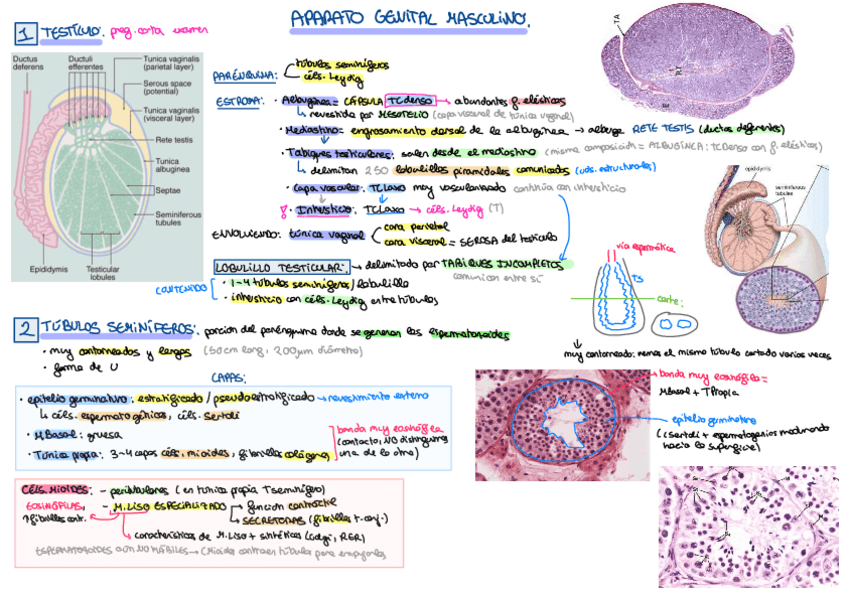 APARATO GENITAL MASCULINO.
1 TESTÍCULO. preg. corta examen
Ductus deferens
Ductuli efferentes
Tunica vaginalis (parietal layer)
Serous space (potential)
Tunica vaginalis (visceral layer)
Rete testis
Tunica albuginea
Septae
Seminiferous tubules
Epididymis
Testicular lobules
PARÉNQUIMA: túbulos seminíferos
céls. Leydig
ESTROMA: · Albugínea = CÁPSULA TC denso → abundantes f. elásticas
↳ revestida por MESOTELIO (capa visceral de túnica vaginal)
· Mediastino = engrosamiento dorsal de la albugínea → alberga RETE TESTIS (ductos deferentes)
· Tabiques testiculares: salen desde el mediastino (misma composición = ALBUGÍNEA: TC Denso con f. elásticas)
↳ delimitan 250 lobulillos piramidales comunicados (uds. estructurales)
· capa vascular: TC Laxo muy vascularizado continúa con intersticio
· Intersticio: TC Laxo → céls. Leydig (T)
ENVOLVIENDO: túnica vaginal cara parietal
cara visceral = SEROSA del testículo
LOBULILLO TESTICULAR: → delimitado por TABIQUES INCOMPLETOS
comunican entre sí
CONTENIDO · 1-4 túbulos seminíferos / lobulillo
· intersticio con céls. Leydig entre túbulos
TA
epididymis
seminiferous tubules
vía espermática
TS
corte:
↓ muy contorneado: vemos el mismo túbulo cortado varias veces
2 TÚBULOS SEMINÍFEROS: porción del parénquima donde se generan los espermatozoides
· muy contorneados y largos (50cm long, 200μm diámetro)
· forma de U
CAPAS:
· epitelio germinativo: estratificado / pseudoestratificado → revestimiento externo
↳ céls. espermatogénicas, céls. Sertoli
· M Basal: gruesa
· Túnica propia: 3-4 capas céls. mioides, fibrillas colágenas
banda muy eosinófila
(contacto, NO distinguimos una de la otra)
banda muy eosinófila =
M Basal + T Propia
epitelio germinativo
(Sertoli + espermatogonias madurando hacia la superficie)
CÉLS. MIOIDES: - peritubulares (en túnica propia T seminífero)
EOSINÓFILAS,
↑fibrillas cont.
- M. LISO ESPECIALIZADO función contráctil
SECRETORAS (fibrillas t. conj.)
↳ características de M. Liso + sintéticas (Golgi, RER)
ESPERMATOZOIDES AÚN NO MÓVILES → (Mioides contraen túbulo para empujarlos